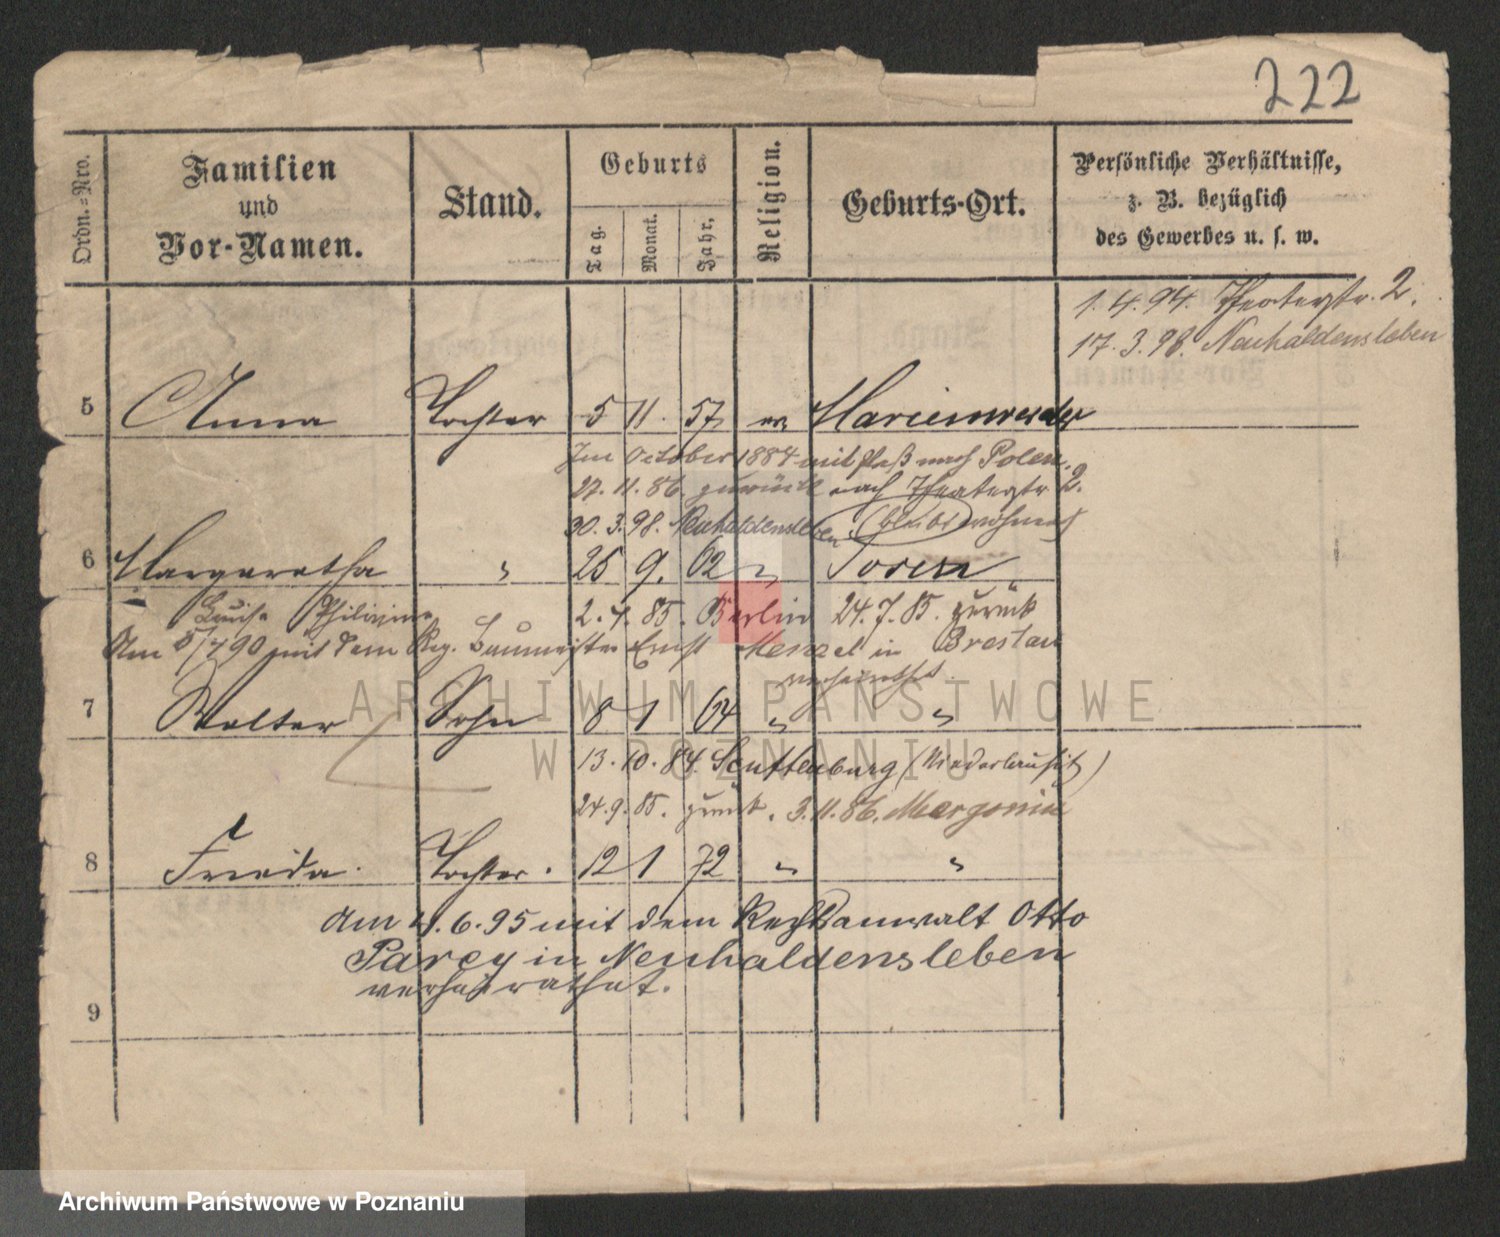 222
Ordn.=Nro.
Familien
und
Vor-Namen.
Stand.
Geburts
Tag.
Monat.
Jahr.
Religion.
Geburts-Ort.
Persönliche Verhältnisse,
z. B. bezüglich
des Gewerbes u. s. w.
1. 4. 94. Theaterstr. 2.
17. 3. 98. Neuhaldensleben
5 Anna Tochter 5 11. 57 ev Marienwerder
Im October 1884 mit Paß nach Polen.
27. 11. 86. zurück nach Theaterstr 2.
30. 3. 98. Neuhaldensleben (bleibt wohnen)
6 Margaretha " 25 9. 62 "
Louise Philippine 2. 4. 85. Berlin 24. 7. 85. zurück
Am 8/4 90 mit dem Reg. Baumeister Ernst Menzel in Breslau
verheirathet.
7 Walter Sohn 8 1 64 " "
13. 10. 84. (Niederlausitz)
24. 9. 85. zurück. 3. 11. 86. Margonin
8 Frieda. Tochter. 12 1 72 " "
Am 4. 6. 95 mit dem Rechtsanwalt Otto
Parey in Neuhaldensleben
verheirathet.
9
ARCHIWUM PAŃSTWOWE
W POZNANIU
Archiwum Państwowe w Poznaniu